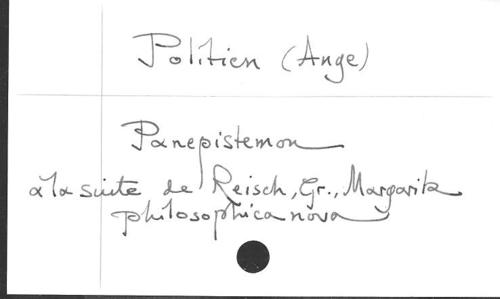 Politien (Ange)
Panepistemon
à la suite de Reisch, Gr., Margarita
philosophica nova